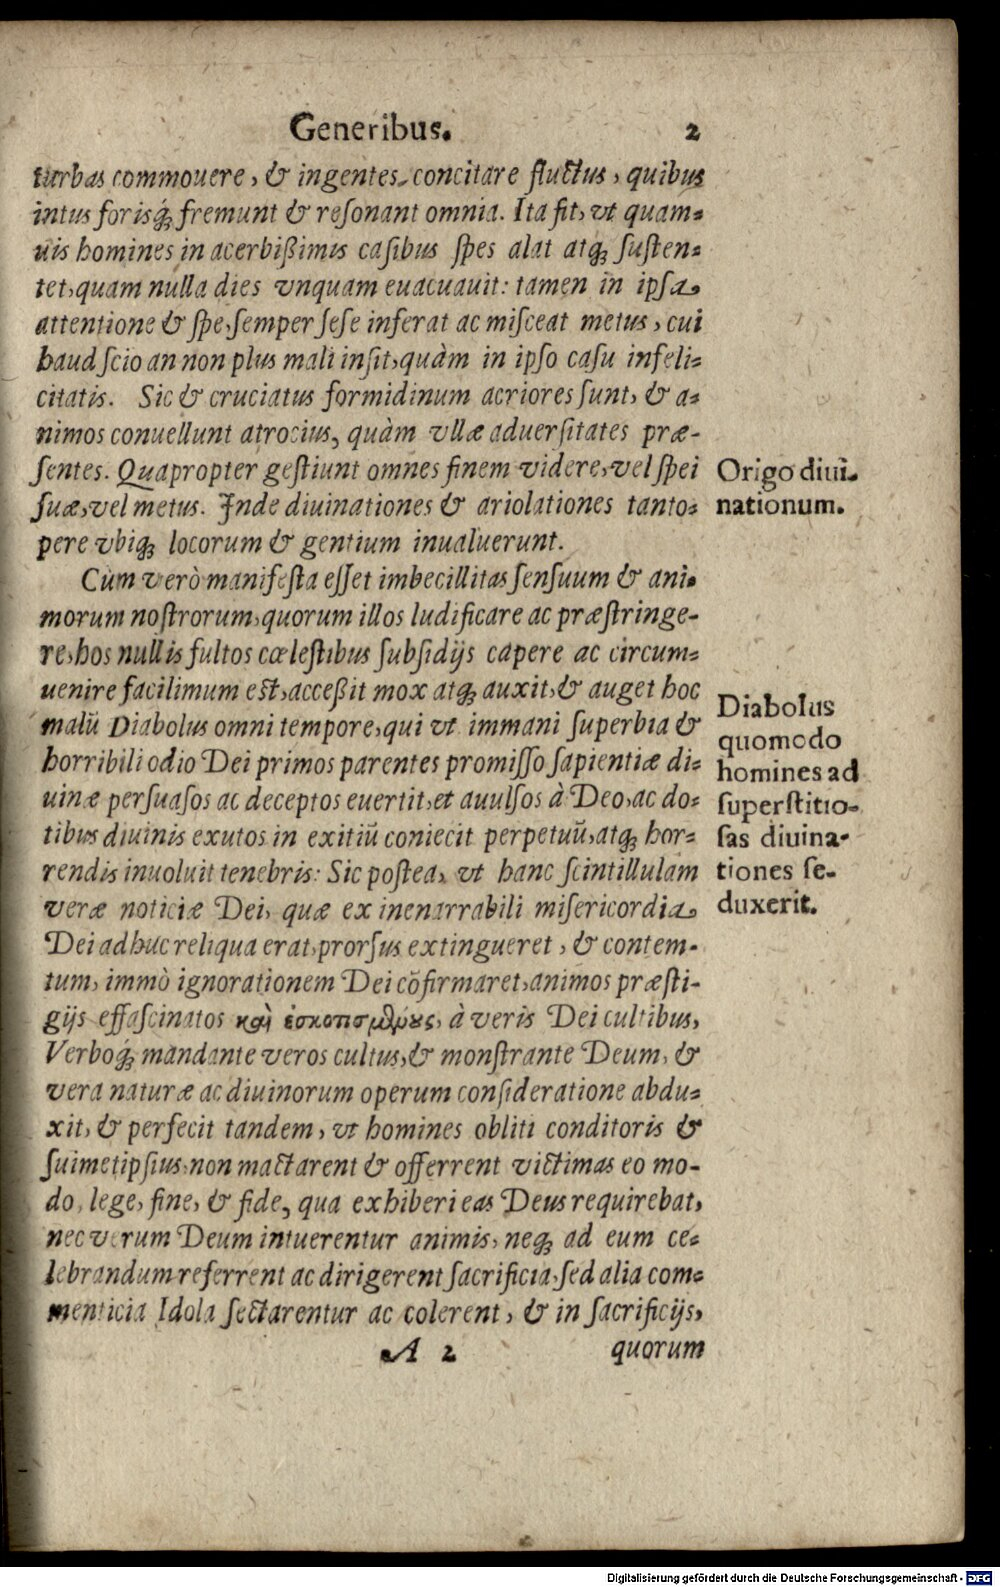 Generibus. 2
turbas commouere, & ingentes concitare fluctus, quibus
intus forisq́; fremunt & reſonant omnia. Ita fit, vt quam=
uis homines in acerbißimis caſibus ſpes alat atq; ſuſten=
tet, quam nulla dies vnquam euacuauit: tamen in ipſa
attentione & ſpe, ſemper ſeſe inferat ac miſceat metus, cui
haud ſcio an non plus mali inſit, quàm in ipſo caſu infeli=
citatis. Sic & cruciatus formidinum acriores ſunt, & a=
nimos conuellunt atrocius, quàm vllæ aduerſitates præ-
ſentes. Quapropter geſtiunt omnes finem videre, vel ſpei
ſuæ, vel metus. Inde diuinationes & ariolationes tanto=
pere vbiq; locorum & gentium inualuerunt.
Origo diui-
nationum.
Cùm verò manifeſta eſſet imbecillitas ſenſuum & ani-
morum noſtrorum, quorum illos ludificare ac præſtringe-
re, hos nullis fultos cœleſtibus ſubſidijs capere ac circum=
uenire facilimum eſt, acceßit mox atq; auxit, & auget hoc
malū Diabolus omni tempore, qui vt immani ſuperbia &
horribili odio Dei primos parentes promiſſo ſapientiæ di=
uinæ perſuaſos ac deceptos euertit, et auulſos à Deo, ac do=
tibus diuinis exutos in exitiū coniecit perpetuū, atq; hor=
rendis inuoluit tenebris: Sic poſtea, vt hanc ſcintillulam
veræ noticiæ Dei, quæ ex inenarrabili miſericordia
Dei adhuc reliqua erat, prorſus extingueret, & contem-
tum, immò ignorationem Dei cōfirmaret, animos præſti-
gijs effaſcinatos καὶ ἐσκοτισμένους, à veris Dei cultibus,
Verboq́; mandante veros cultus, & monſtrante Deum, &
vera naturæ ac diuinorum operum conſideratione abdu=
xit, & perfecit tandem, vt homines obliti conditoris &
ſuimetipſius, non mactarent & offerrent victimas eo mo-
do, lege, fine, & fide, qua exhiberi eas Deus requirebat,
nec verum Deum intuerentur animis, neq; ad eum ce=
lebrandum referrent ac dirigerent ſacrificia, ſed alia com=
menticia Idola ſectarentur ac colerent, & in ſacrificijs,
Diabolus
quomodo
homines ad
ſuperſtitio-
ſas diuina-
tiones ſe-
duxerit.
A 2 quorum
Digitalisierung gefördert durch die Deutsche Forschungsgemeinschaft - DFG